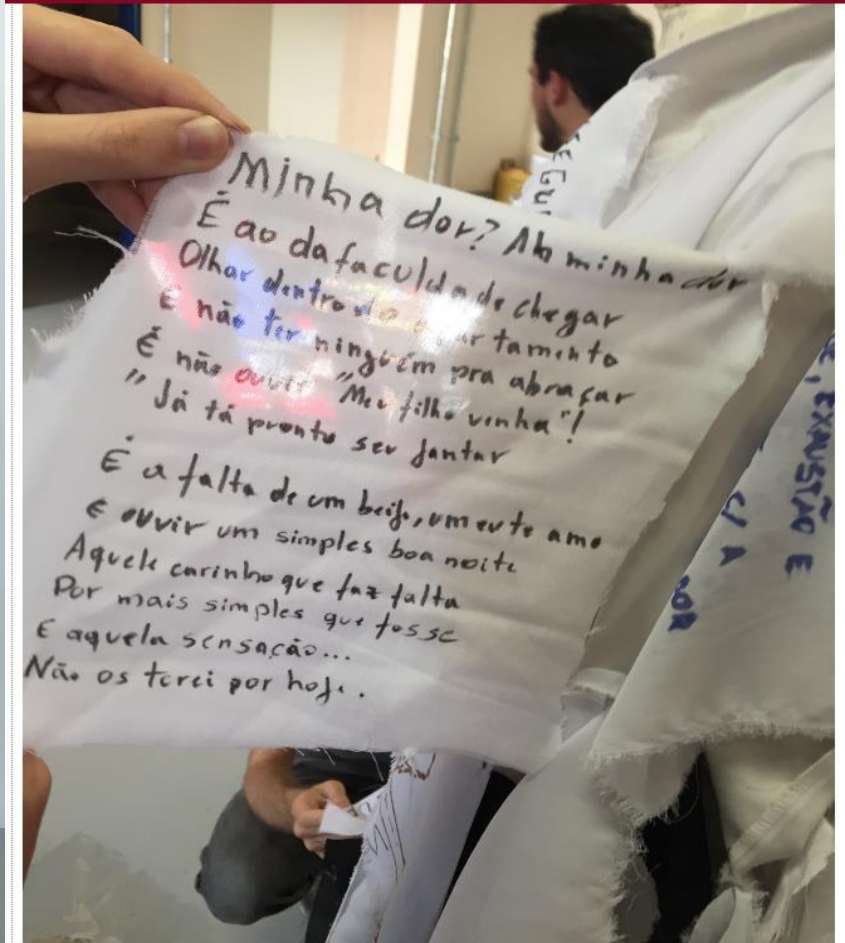 Minha dor? Ah minha dor
É ao da faculdade chegar
Olhar dentro do apartamento
E não ter ninguém pra abraçar
É não ouvir "Meu filho vinha"!
"Já tá pronto seu jantar
É a falta de um beijo, um eu te amo
E ouvir um simples boa noite
Aquele carinho que faz falta
Por mais simples que fosse
E aquela sensação...
Não os terei por hoje.
EXAUSTÃO E
C/ A
DOR